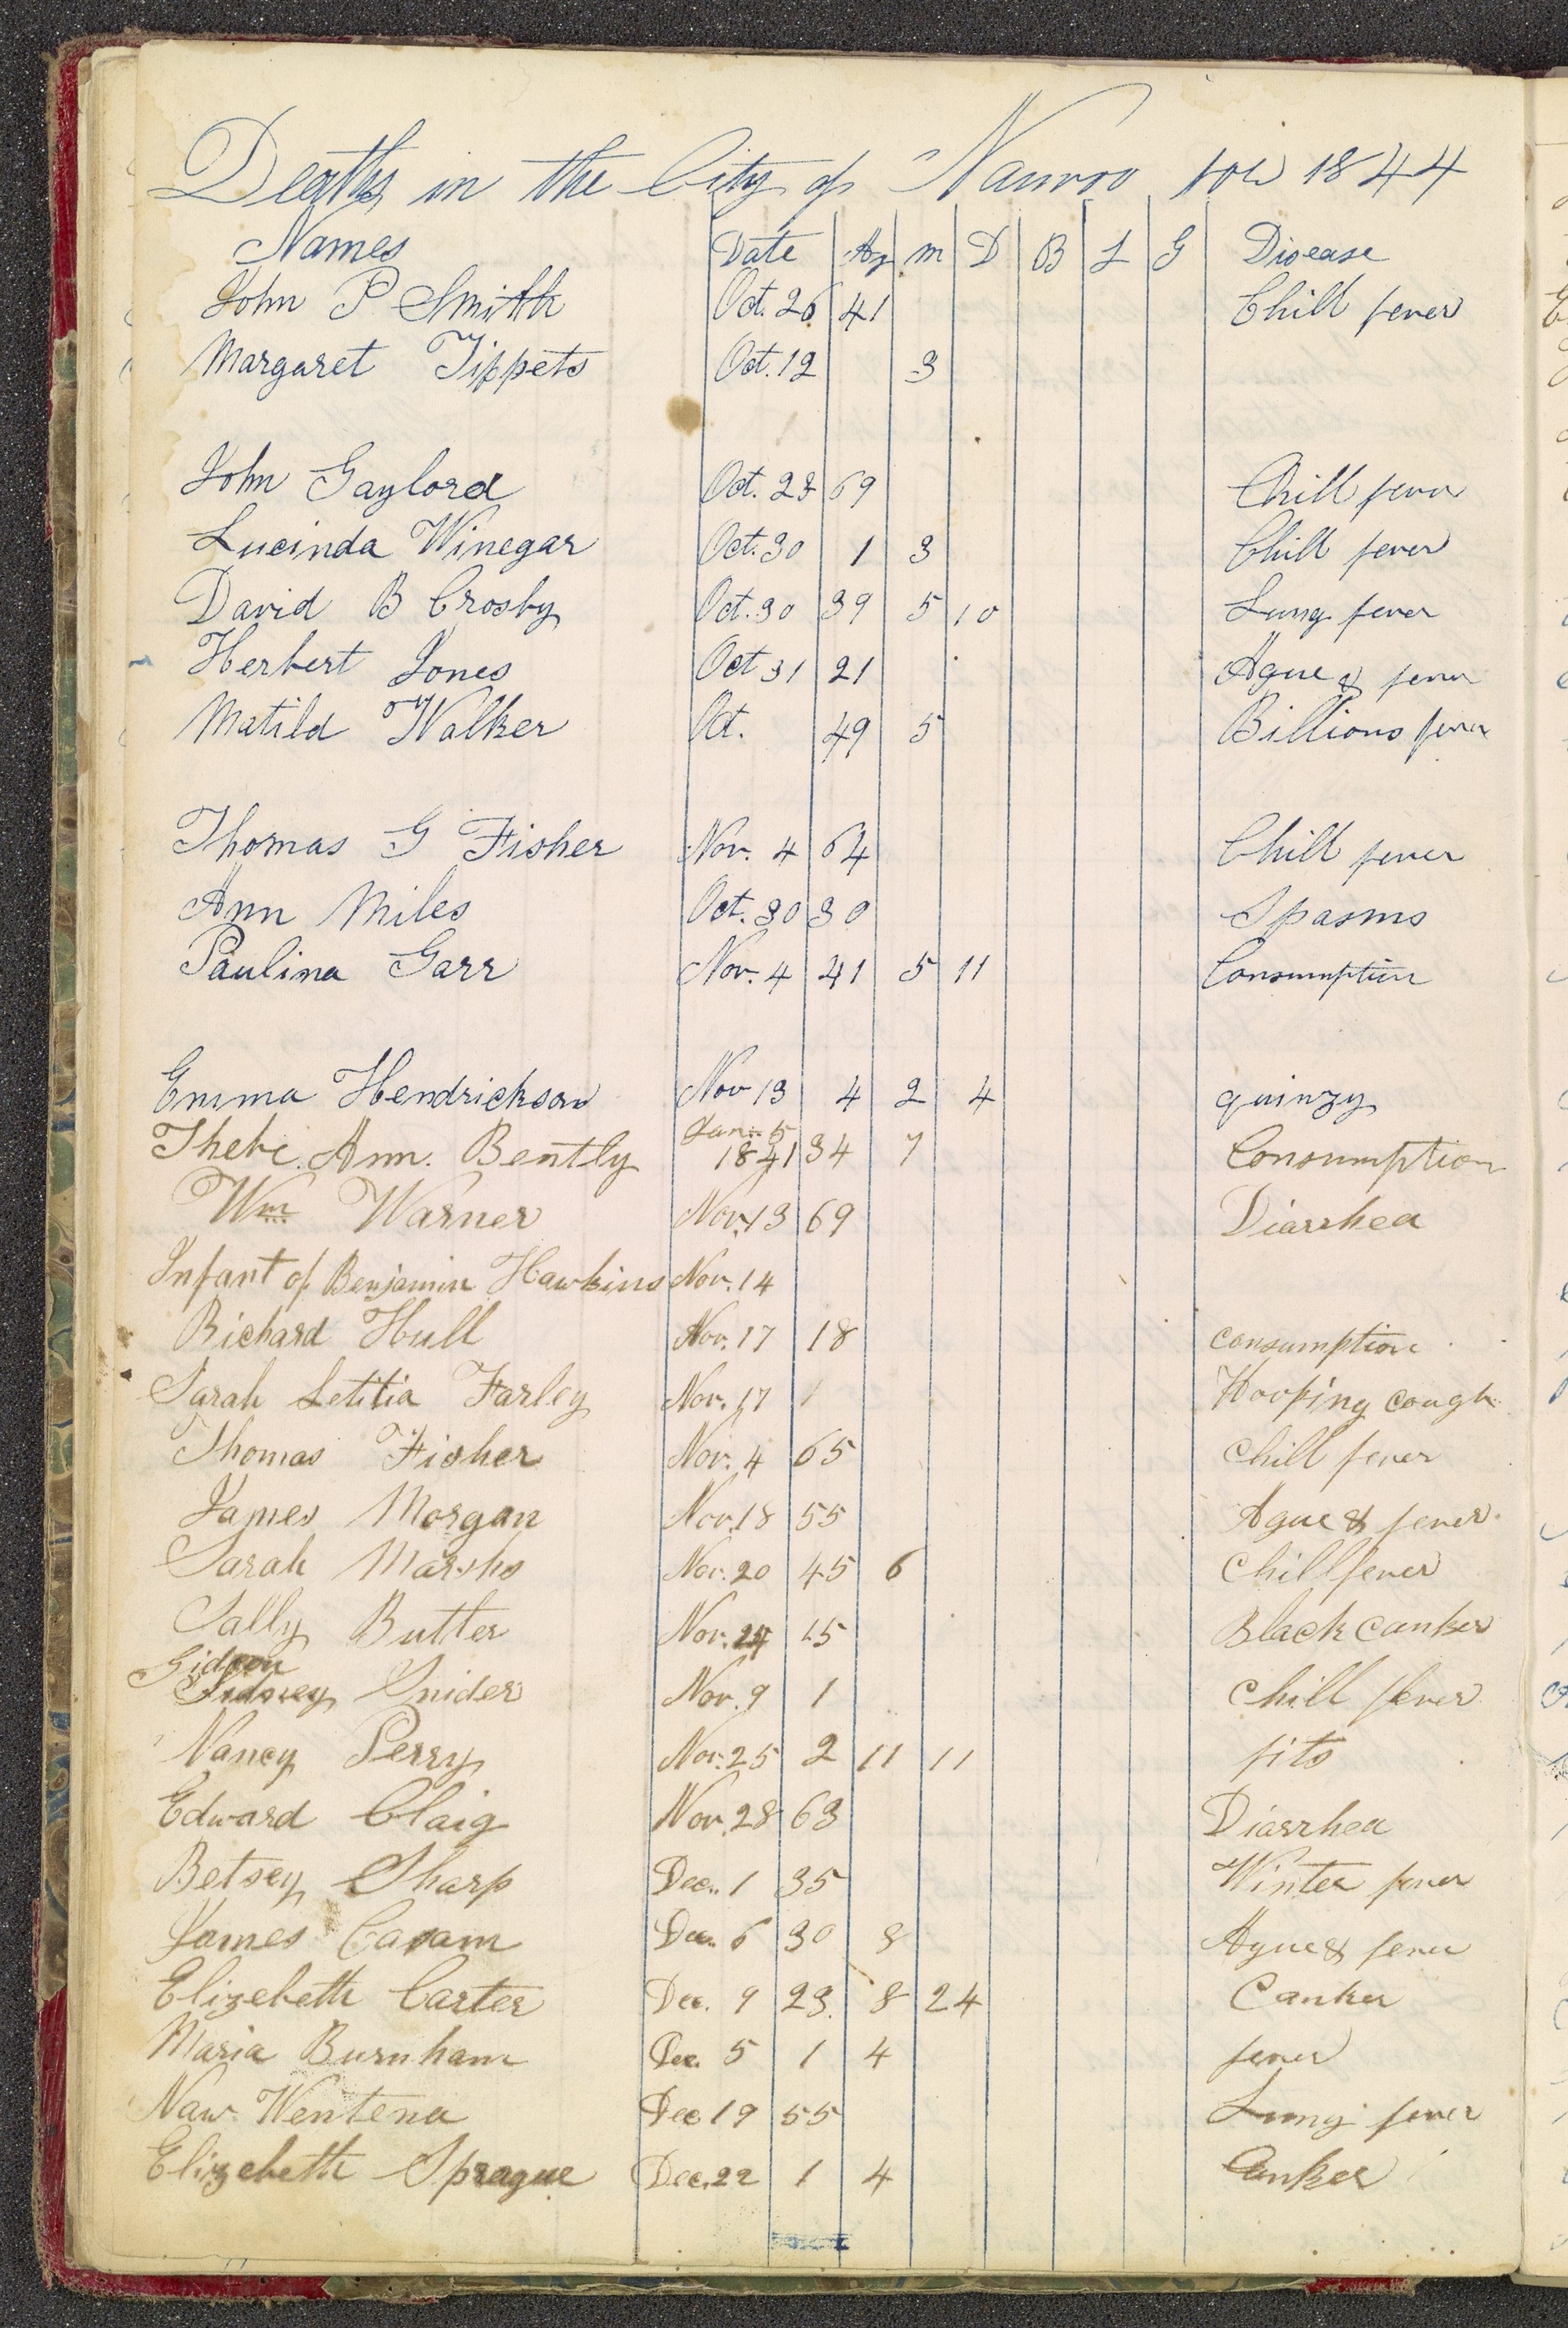 Deaths in the City of Nauvoo for 1844
Names Date Ag m D B L G Disease
John P Smith Oct. 26 41 Chill fever
Margaret Tippets Oct. 12 3
John Gaylord Oct. 28 69 Chill fever
Lucinda Winegar Oct. 30 1 3 Chill fever
David B Crosby Oct. 30 39 5 10 Lung fever
Herbert Jones Oct 31 21 Ague & fever
Matild Walker Oct. 49 5 Billions fever
Thomas G Fisher Nov. 4 64 Chill fever
Ann Miles Oct. 30 30 Spasms
Paulina Garr Nov. 4 41 5 11 Consumption
Emma Hendrickson Nov 13 4 2 4 quinzy
Jan. 5
Thebe. Ann. Bently 1841 34 7 Consumption
Wm Warner Nov. 13 69 Diarrhea
Infant of Benjamin Hawkins Nov. 14
Richard Hull Nov. 17 18 consumption
Sarah Letitia Farley Nov. 17 1 Hooping cough
Thomas Fisher Nov. 4 65 chill fever
James Morgan Nov. 18 55 Ague & fever.
Sarah Marshs Nov. 20 45 6 chill fever
Sally Butler Nov. 24 15 Black canker
Gideon
Sidney Snider Nov. 9 1 chill fever
Nancy Perry Nov. 25 2 11 11 fits
Edward Claig Nov. 28 63 Diarrhea
Betsey Sharp Dec. 1 35 Winter fever
James Dec. 6 30 8 Ague & fever
Elizebeth Carter Dec. 9 23. 8 24 Canker
Maria Burnham Dec. 5 1 4 fever
Naw Wentena Dec 19 55 Lung fever
Elizebeth Sprague Dec. 22 1 4 Canker